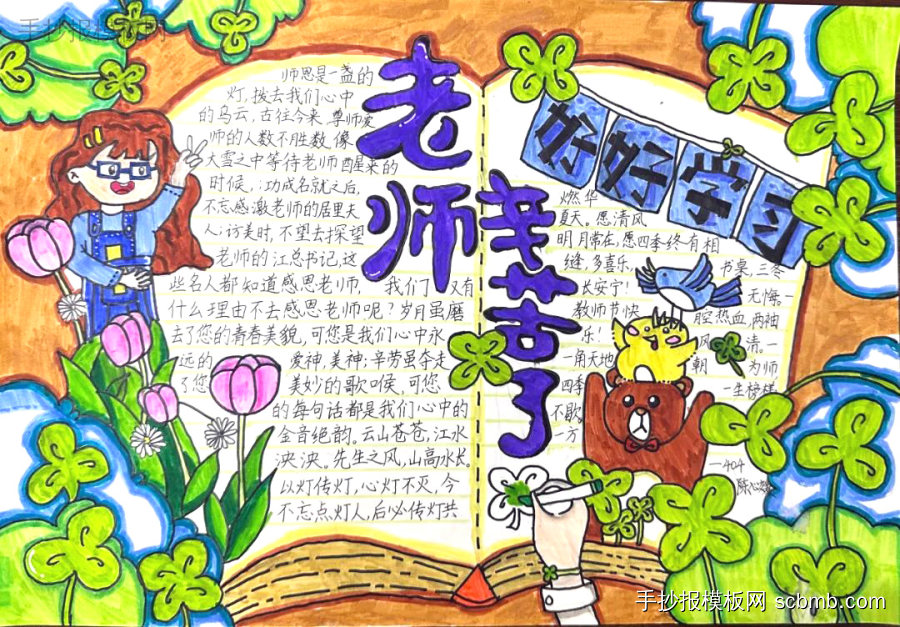 手抄报模板网
老师
辛苦了
好好学习
师恩是一盏的
灯,拨去我们心中
的乌云,古往今来,尊师爱
师的人数不胜数,像
大雪之中等待老师醒来的
时候,功成名就之后,
不忘感激老师的居里夫
人;访美时,不望去探望
老师的江总书记,这
些名人都知道感恩老师,我们又有
什么理由不去感恩老师呢?岁月虽磨
去了您的青春美貌,可您是我们心中永
远的爱神,美神;辛劳虽夺走
了您美妙的歌喉,可您
的每句话都是我们心中的
金音绝韵。云山苍苍,江水
泱泱。先生之风,山高水长。
以灯传灯,心灯不灭,今
不忘点灯人,后必传灯共
燃华
夏天。愿清风
明月常在,愿四季终有相
缝,多喜乐,
长安宁!
教师节快
乐!
一角天地
四季
不歇。
一方
书桌,三冬
无悔。一
腔热血,两袖
风清。一
朝为师
一生榜样
—404
手抄报模板网 scbmb.com